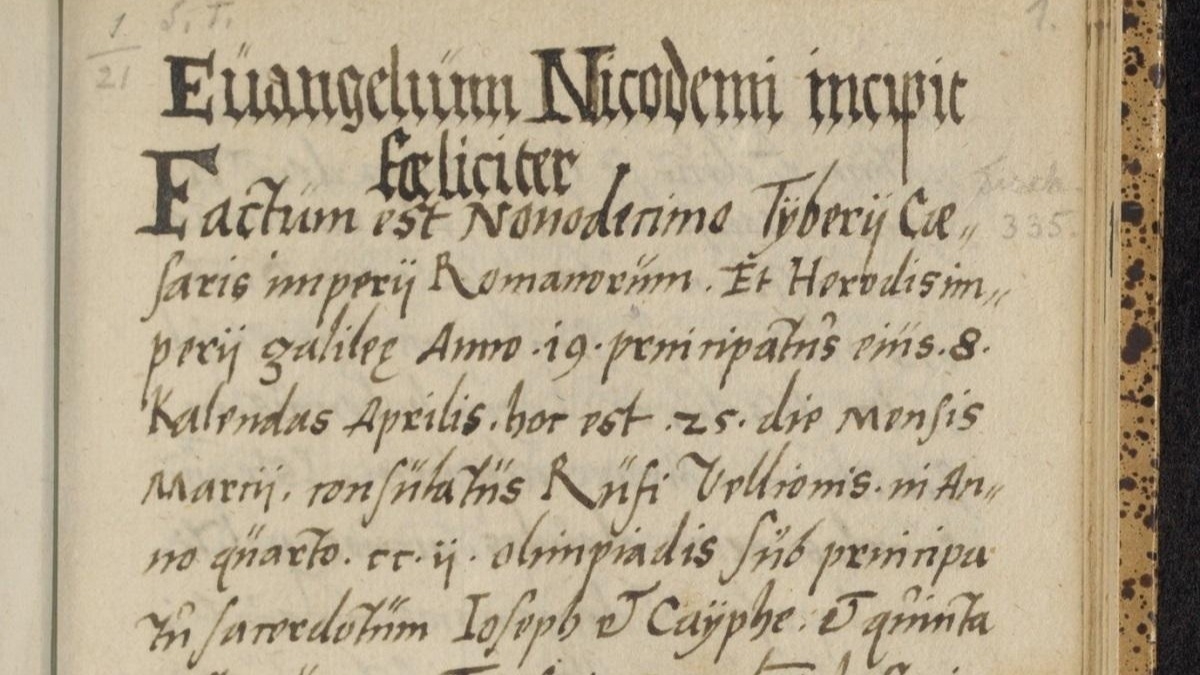 1 S. T. 1.
21
Eüangeliüm Nicodemi incipit
fœliciter
Factüm est Nonodecimo Tÿberij Cæ„
saris imperij Romanorüm. Et Herodis im„
perij galileę Anno .19. principatus eiüs .8.
Kalendas Aprilis. hoc est .25. die Mensis
Marcij. consülatüs Rüfi Vellionis. in An„
no qüarto. cc. ij. olimpiadis süb principa
tu sacerdotüm Ioseph et Cayphe. et quinta
335.